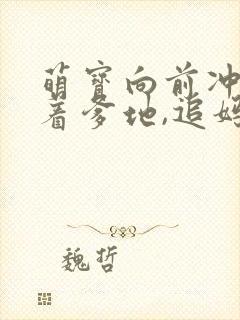 萌宝向前冲
着爹地,追妈
魏哲